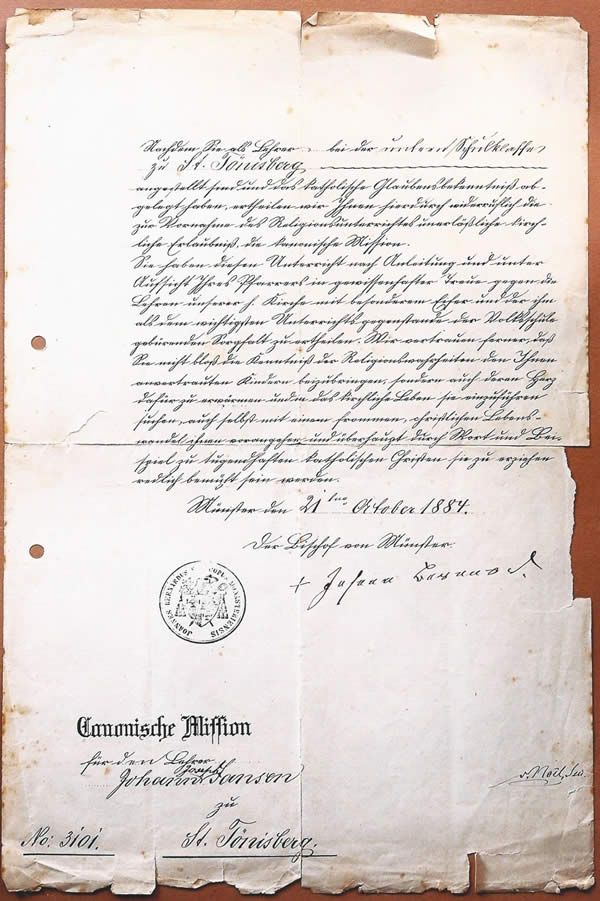 Nachdem Sie als Lehrer bei der untern Schulklasse
zu St. Tönisberg
angestellt sind und das katholische Glaubensbekenntniß ab-
gelegt haben, ertheilen wir Ihnen hierdurch widerruflich die
zur Vornahme des Religionsunterrichtes unerläßliche kirch-
liche Erlaubniß, die kanonische Mission.
Sie haben diesen Unterricht nach Anleitung und unter
Aufsicht Ihres Pfarrers in gewissenhafter Treue gegen die
Lehren unserer h. Kirche mit besonderem Eifer und der ihm
als dem wichtigsten Unterrichtsgegenstande der Volksschule
gebürenden Sorgfalt zu ertheilen. Wir vertrauen ferner, daß
Sie nicht bloß die Kenntniß der Religionswahrheiten den Ihnen
anvertrauten Kindern beizubringen, sondern auch deren Herz
dafür zu erwärmen und in das kirchliche Leben sie einzuführen
suchen, auch selbst mit einem frommen, christlichen Lebens-
wandel ihnen vorangehen und überhaupt durch Wort und Bei-
spiel zu tugendhaften katholischen Christen sie zu erziehen
redlich bemüht sein werden.
Münster den 21ten October 1884.
Der Bischof von Münster.
+ Johann Bernard.
JOANNES BERNARDUS EPISCOPUS MONASTERIENSIS
Canonische Mission
für den Lehrer
Joseph
Johann Jansen
zu
No: 3101. St. Tönisberg.